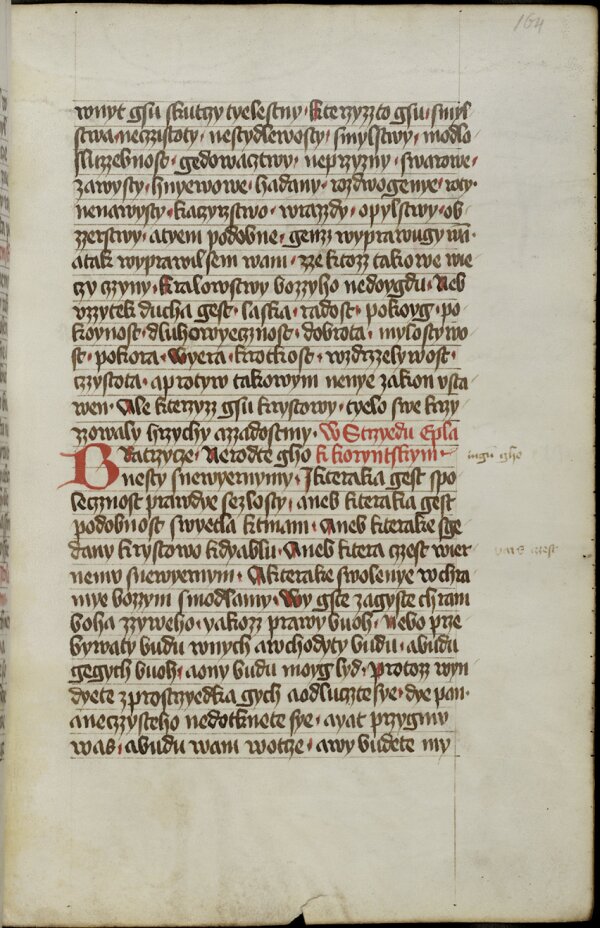 164
wnyt gsu skutczy tyelestny · kterzyzzto gsu · smyl
stwa · neczistoty · nestydlewosty · smylstwy · modlo
sluzzebnost · gedowacztwy · neprzyzny · swarowe ·
zawysty · hnyewowe · hadany · rozdwogenye · roty ·
nenawysty · kaczyrzstwo · wrazzdy · opylstwy · ob
zzerstwy · atyem podobne · genzz wyprawugy wā ·
atak wyprawil sem wam · zze ktozz takowe wie
czy czyny · kralowstwy bozzyho nedoygdu · Neb
vzzytek ducha gest · laska · radost · pokoyg · po
koynost · dluhowyecznost · dobrota · mylostywo
st · pokora · Wyera · krotkost · wzdrzzelywost ·
czystota · aprotyw takowym nenye zakon vsta
wen · Ale kterzyzz gsu krystowy · tyelo swe krzy
zzowaly hrzychy azzadostmy · W Strzyedu Epla
Bratrzycze · Nerodte gho k koryntskym
nesty snewyernymy · J kteraka gest spo
lecznost prawdye sezlosty · aneb kteraka gest
podobnost swyetla ktmam · Aneb kterake sge
dany krystowo kdyablu · Aneb ktera czest wier
nemu snewyernym · Akterake swolenye wchra
mye bozzym smodlamy · Wy gste zagyste chram
boha zzyweho · yakozz prawy buoh · Nebo prze
bywaty budu wnych awchodyty budu · abudu
gegych buoh · aony budu moyg lyd · Protozz wyn
dyete zprostrzyedka gych aodlucztesye · dye pan ·
aneczysteho nedotknete sye · ayat przygmu
was · abudu wam wotcze · awy budete my